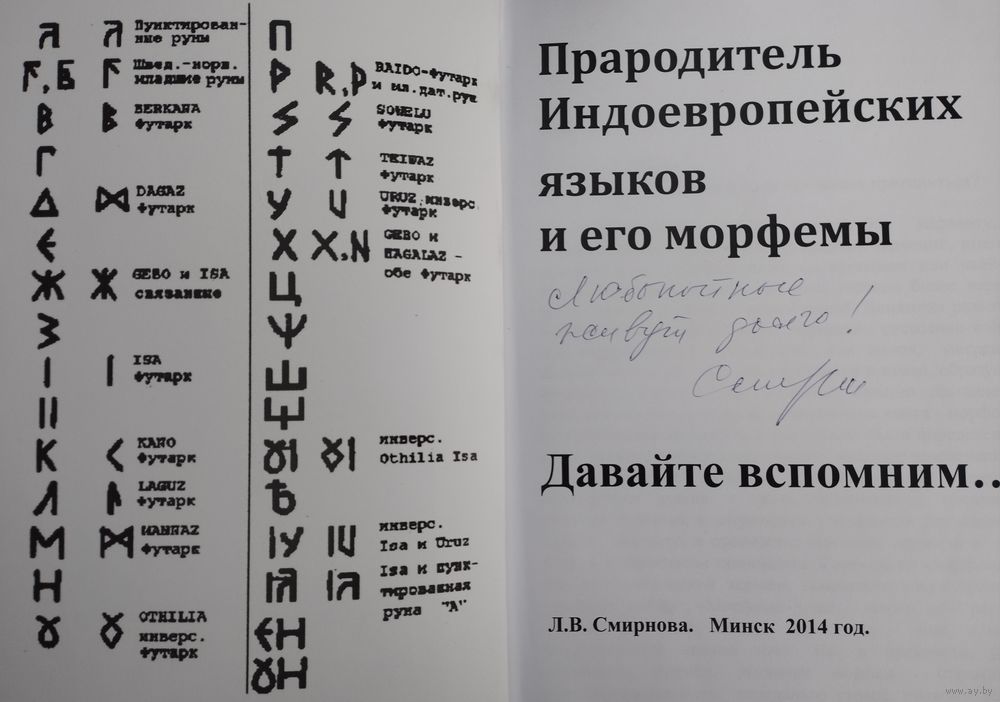 Я Я Пунктирован-
ные руны
Г, Б Г Швед.-норв.
младшие руны
В В BERKANA
Футарк
Г
Δ ᛞ DAGAZ
Футарк
Є
Ж Ж GEBO и ISA
связанные
З
I I ISA
Футарк
II
К < KANO
Футарк
Л ᚨ LAGUZ
Футарк
М ᛗ MANNAZ
Футарк
Н
Ɣ OTHILIA
инверс.
Футарк
П
Р R, Р RAIDO-Футарк
и мл.дат.рун
SOWELU
Футарк
Т ↑ TEIWAZ
Футарк
У U URUZ инверс.
Футарк
Х Х, N GEBO и
HAGALAZ -
обе Футарк
Ц
Ψ
Ш
инверс.
Othilia Isa
Ѣ
IУ IU инверс.
Isa и Uruz
IЯ IЯ Isa и пунк-
тированная
руна "А"
ЄН
ƔН
Прародитель
Индоевропейских
языков
и его морфемы
Любопытные
живут долго!
Давайте вспомним..
Л.В. Смирнова. Минск 2014 год.
www.ay.by